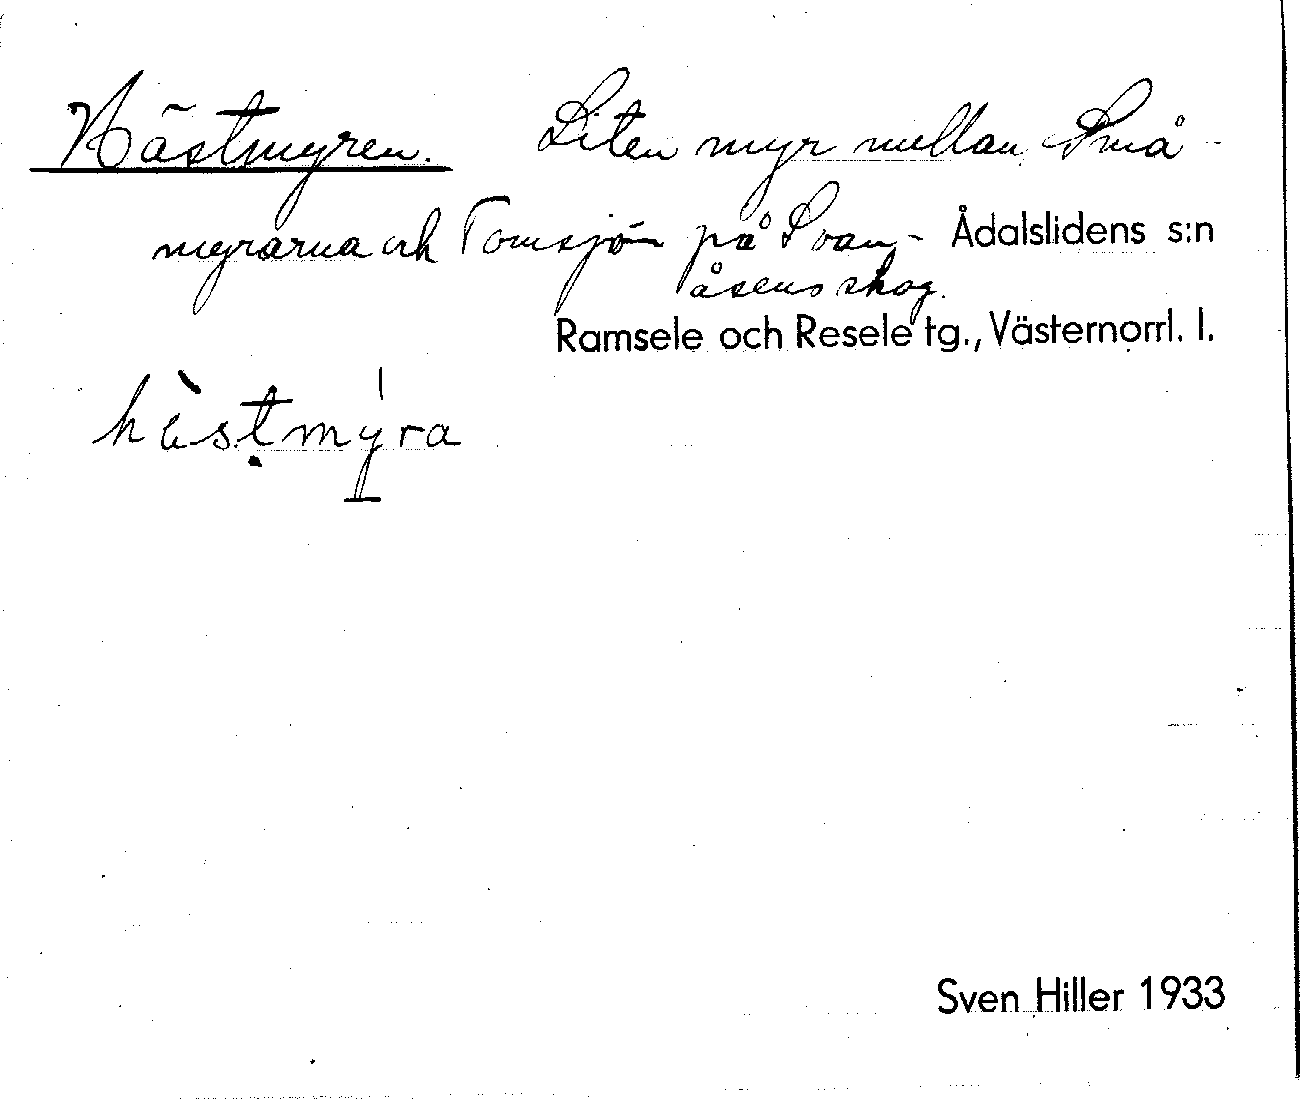 Hästmyren. Liten myr mellan Små-
myrarna och Tomsjön på Svan-
åsens skog.
Ådalslidens s:n
Ramsele och Resele tg., Västernorrl. l.
hästmyra
Sven Hiller 1933